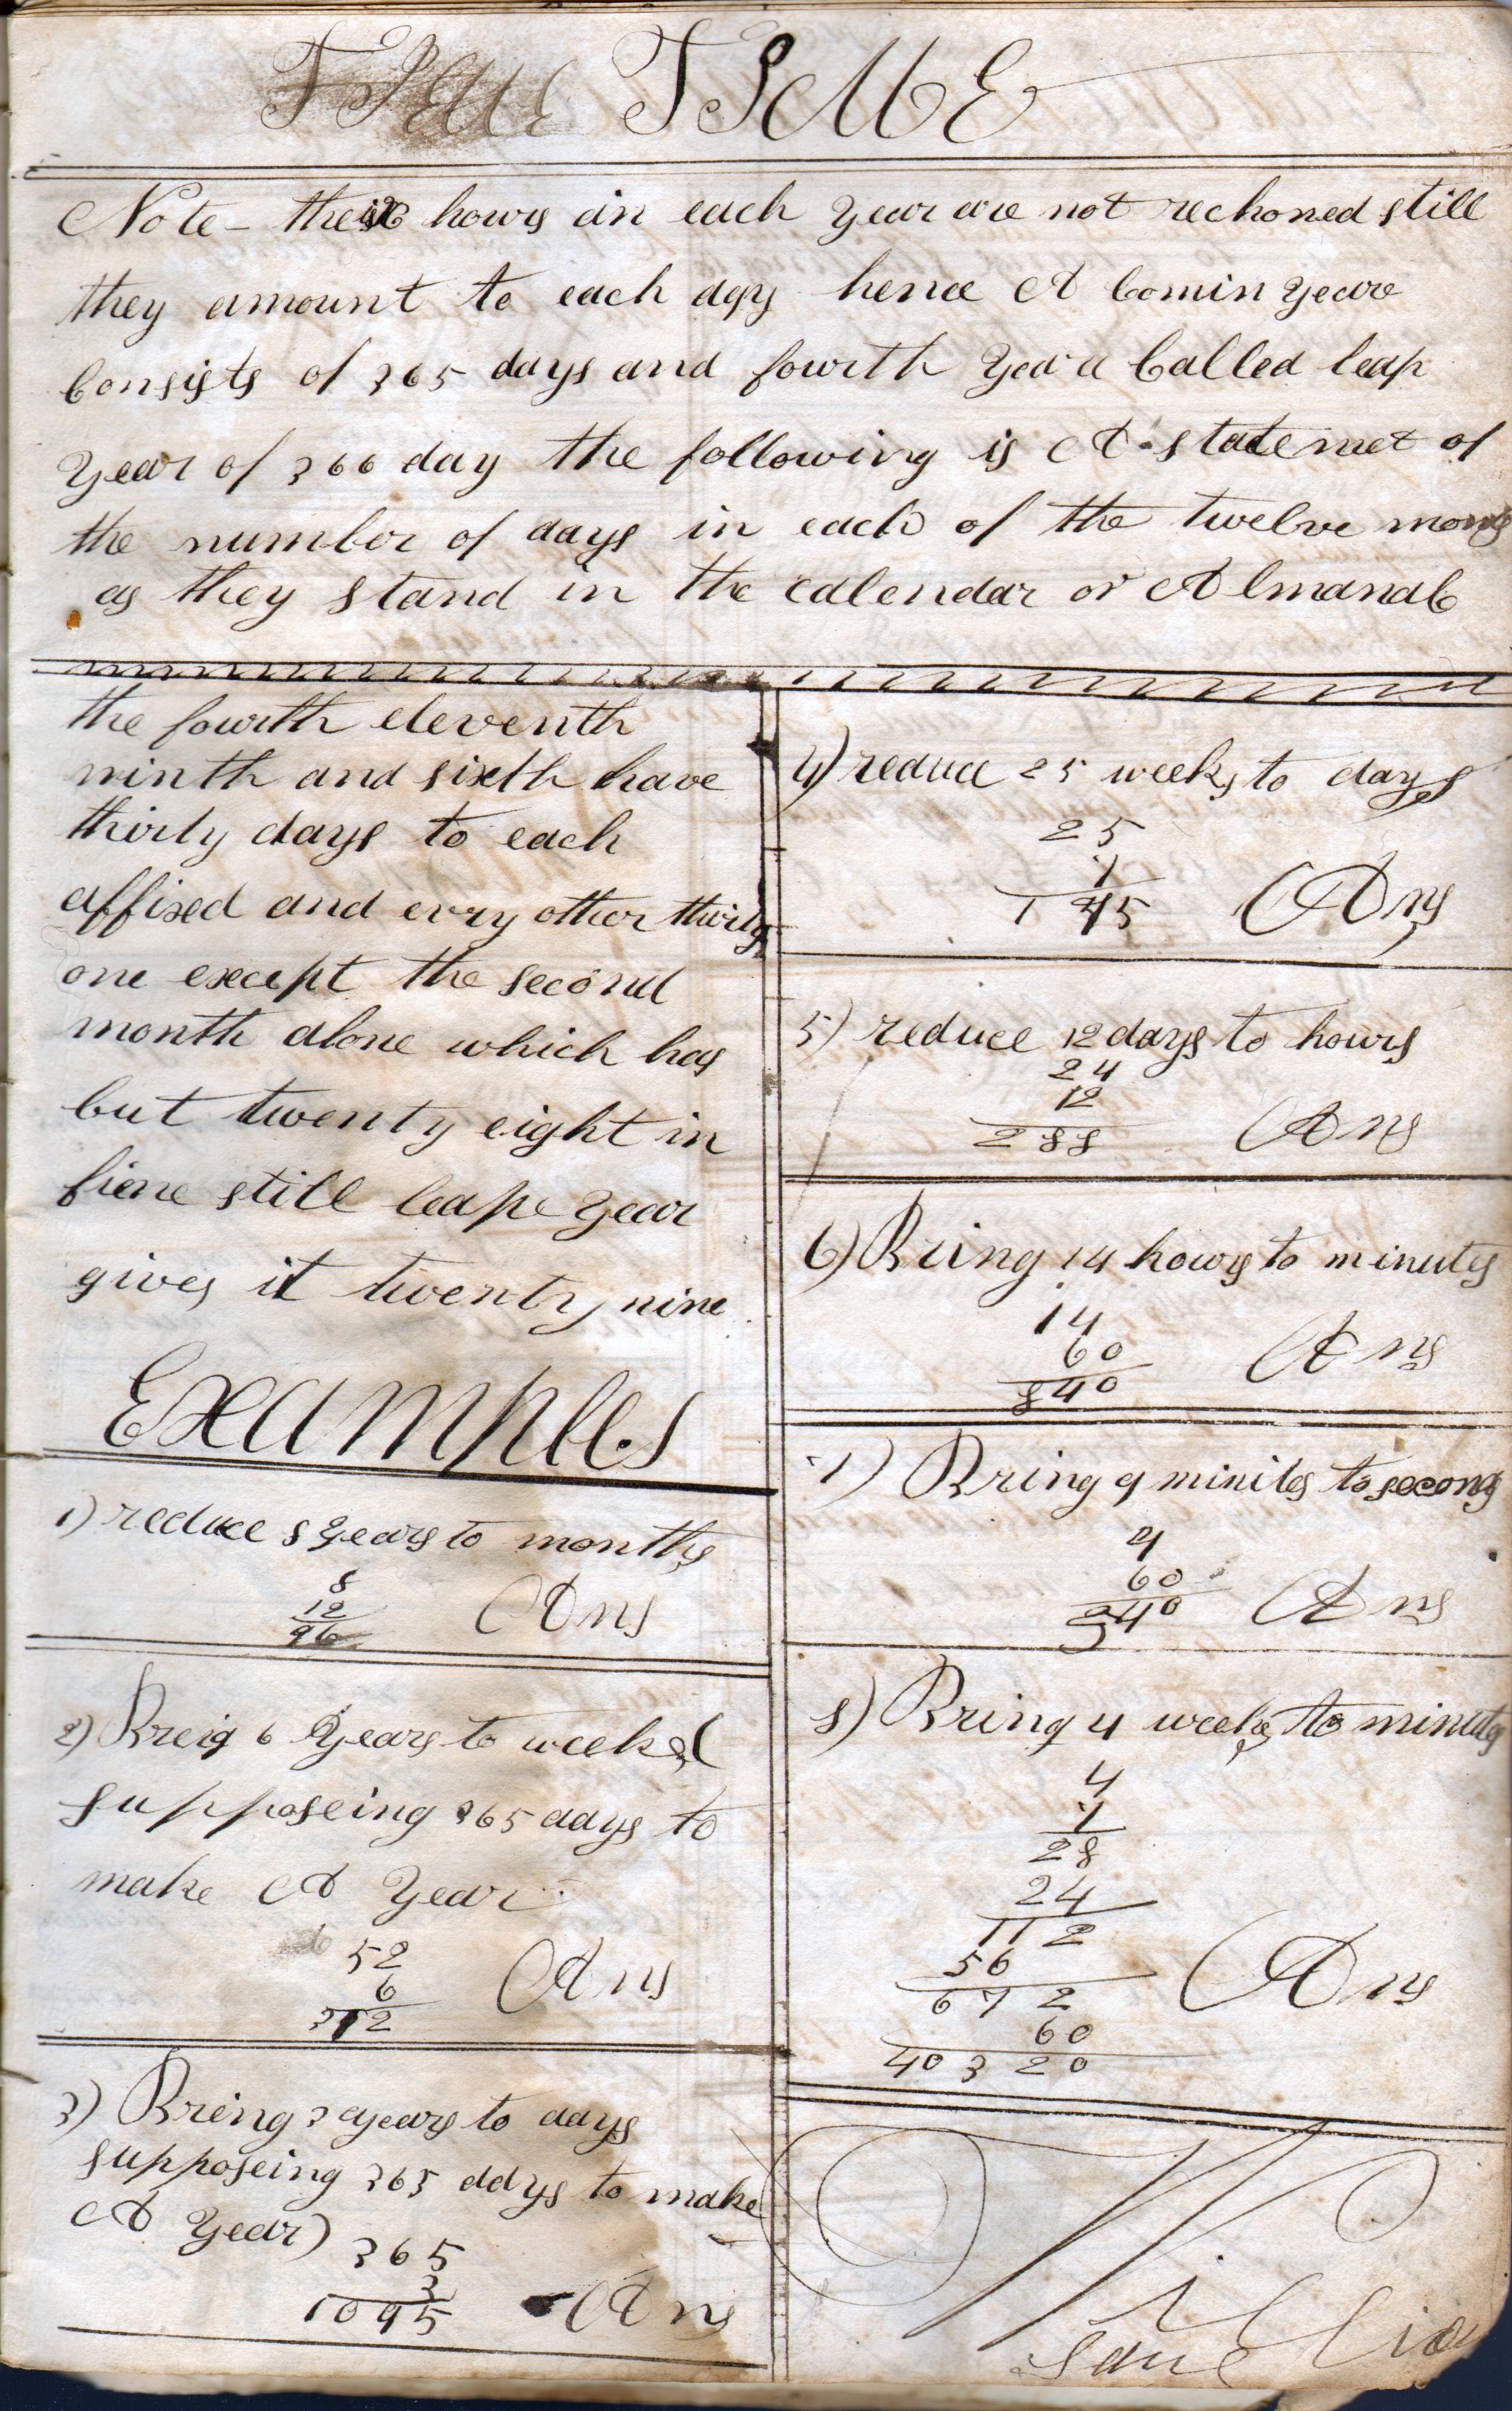 TIME TIME
Note - the six hours in each year are not reckoned still
they amount to each day hence A Comin yeare
Consists of 365 days and fourth Yea a Called leap
Year of 366 day the following is A statemet of
the number of days in each of the twelve mons
as they stand in the calendar or Almanac
the fourth eleventh
ninth and sixth have
thirty days to each
affixed and evry other thirty
one except the second
month alone which has
but twenty eight in
fiene still leape year
gives it twenty nine
Examples
1) reduce 8 years to months
8
12
96 Ans
2) Breig 6 years to weeks
supposeing 365 days to
make A Year
52
6 Ans
312
3) Bring 3 years to days
supposeing 365 days to make
A Year)
365
3
1095 Ans
4) reduce 25 weeks to days
25
7
175 Ans
5) reduce 12 days to hours
24
12
288 Ans
6) Bring 14 hours to minutes
14
60 Ans
840
7) Bring 9 minites to secons
9
60
540 Ans
8) Bring 4 weeks to minuts
4
7
28
24
112
56
672 Ans
60
40320